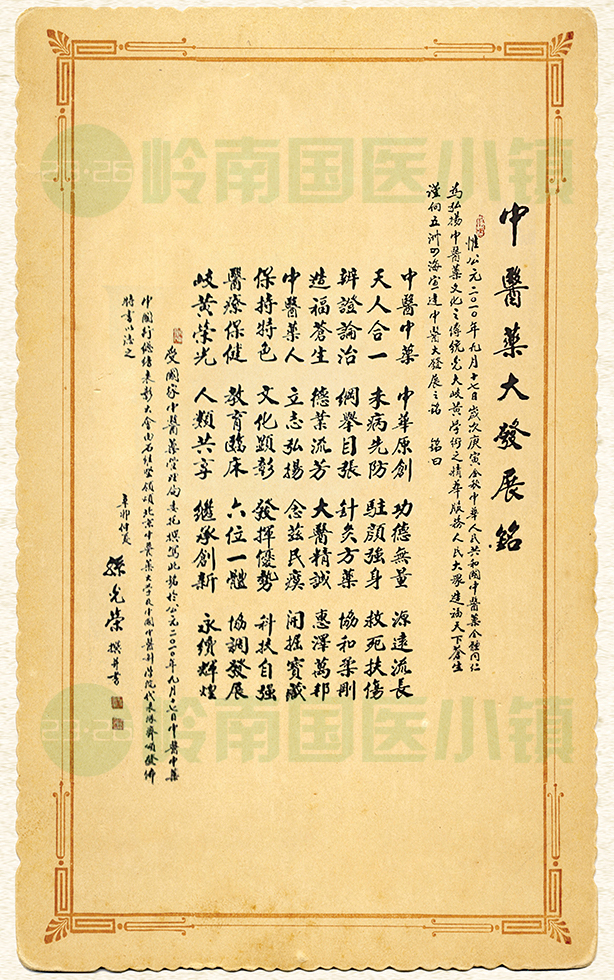 岭南国医小镇
中醫藥大發展銘
惟公元二〇一〇年九月十七日歲次庚寅金秋中華人民共和國中醫藥全體同仁
為弘揚中醫藥文化之傳統光大岐黃學術之精華服務人民大眾造福天下蒼生
謹向五洲四海宣達中醫大發展之銘 銘曰
中醫中藥 中華原創 功德無量 源遠流長
天人合一 未病先防 駐顏強身 救死扶傷
辨證論治 綱舉目張 針灸方藥 協和柔剛
造福蒼生 德業流芳 大醫精誠 惠澤萬邦
中醫藥人 立志弘揚 念茲民瘼 開掘寶藏
保持特色 文化顯彰 發揮優勢 科技自強
醫療保健 教育臨床 六位一體 協調發展
岐黃榮光 人類共享 繼承創新 永續輝煌
受國家中醫藥管理局委托撰寫此銘於公元二〇一〇年九月十七日中醫中藥
中國行總結表彰大會由領頌北京中醫藥大學及中國中醫科學院代表隊齊頌發佈
特書以誌之
辛卯仲夏
孫光榮 撰并書
岭南国医小镇